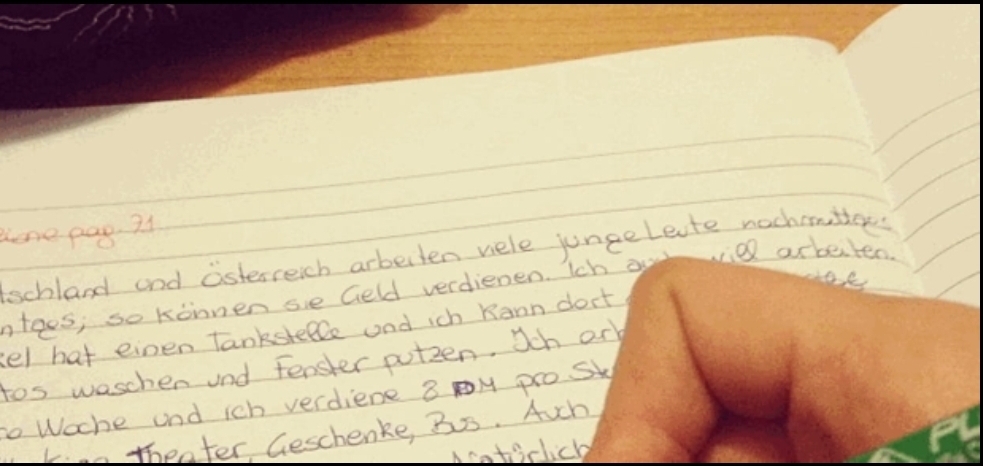 pag. 71
tschland und Österreich arbeiten viele junge Leute nachmittags
ntges, so können sie Geld verdienen. Ich will arbeiten.
kel hat einen Tankstelle und ich kann dort
tos waschen und Fenster putzen. Ich arb
o Woche und ich verdiene 8 DM pro St
Theater, Geschenke, Bus. Auch
Natürlich
PL